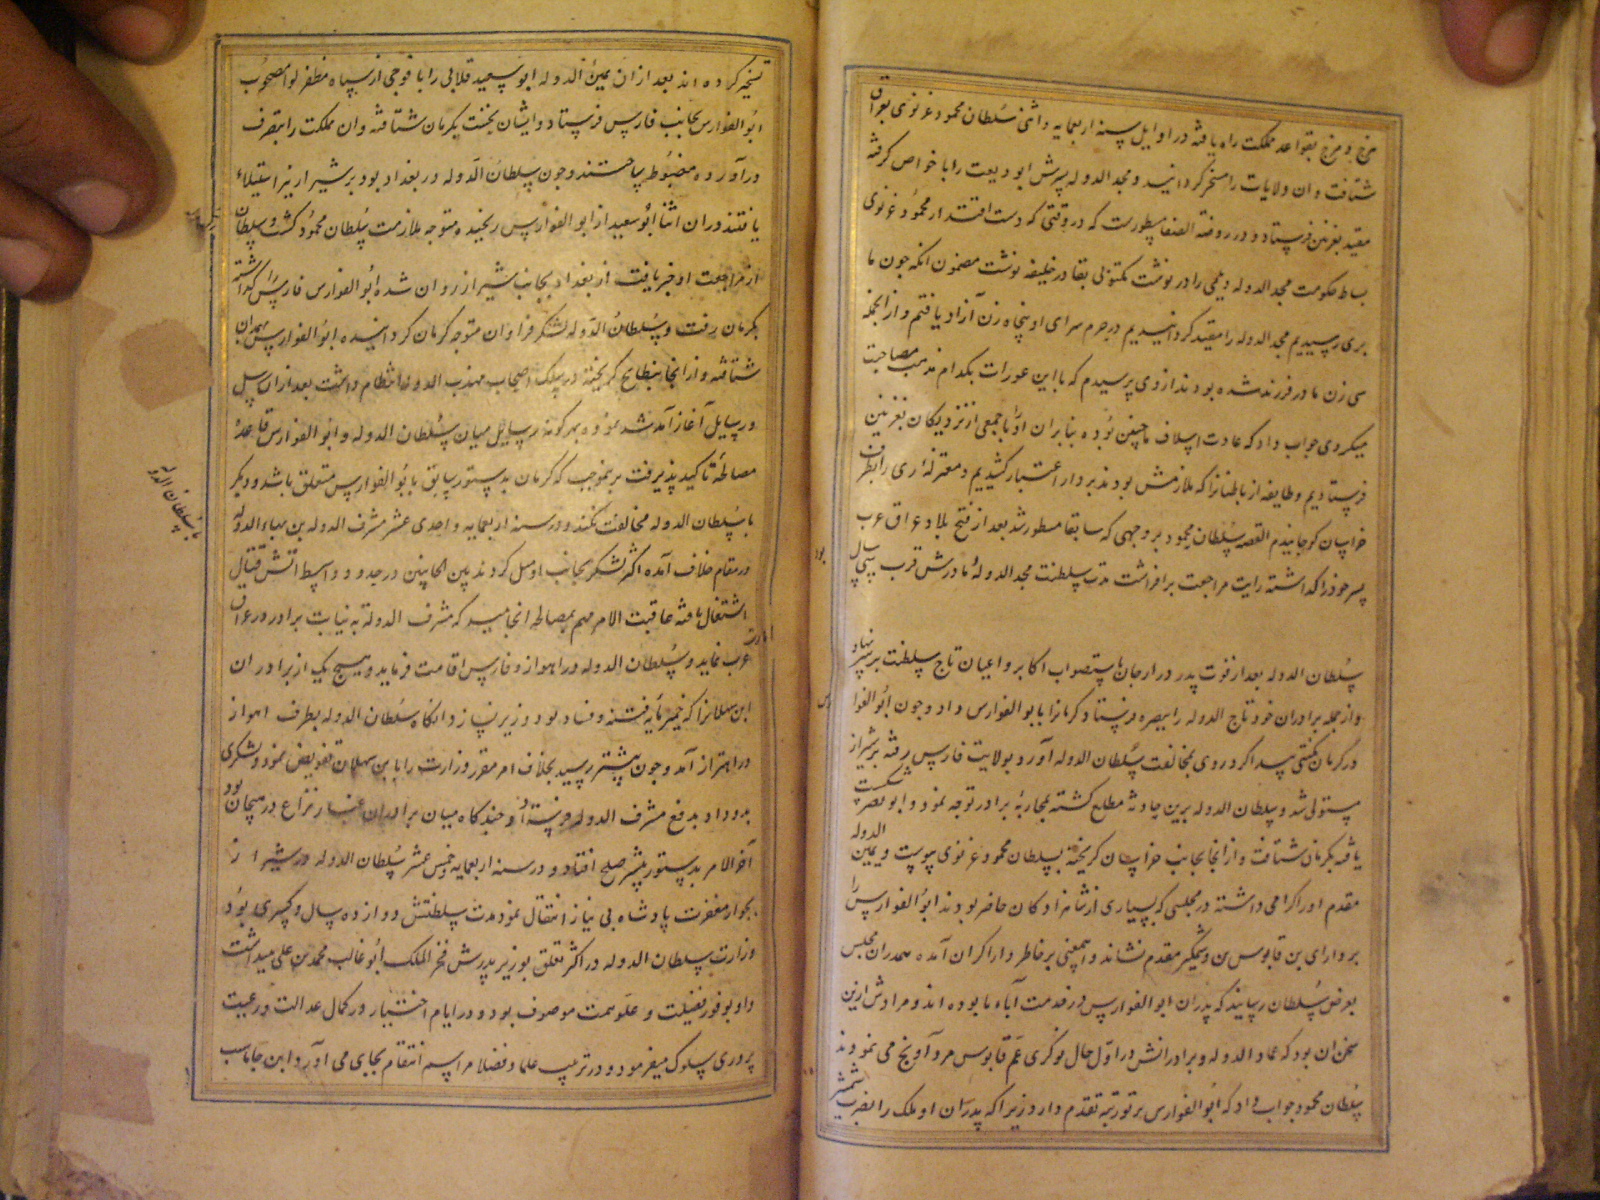 هرج و مرج بقواعد مملکت راه یافته در اوایل سنه اربعمایه و اثنی سلطان محمود غزنوی بعراق
شتافت و ان ولایات را مسخر گردانید و مجد الدوله پسرش ابو دلف را با خواص گرفته
مقید بغزنین فرستاد و در روضة الصفا مسطورست که در وقتی که دست اقتدار محمود غزنوی
بساط حکومت مجد الدوله دیلمی را در نوشت مکتوبی بقادر خلیفه نوشت مضمون انکه چون ما
بری رسیدیم مجد الدوله را مقید گردانیدیم در حرم سرای او پنجاه زن آزاد یافتیم و از انجمله
سی زن مادر فرزند شده بودند از وی پرسیدم که با این عورات بکدام مذهب مصاحبت
میکردی جواب داد که عادت اسلاف ما چنین بوده بنابران او را با جمعی از نزدیکان بغزنین
فرستادیم و طایفه از باطنیان را که ملازمش بودند بردار اعتبار کشیدیم و معتزله ری را بطرف
خراسان کوچانیدم القصه سلطان محمود بر وجهی که سابقا مسطور شد بعد از فتح بلاد عراق عرب
پسر خود را گذاشته رایت مراجعت برافراشت مدت سلطنت مجد الدوله و مادرش قرب سی سال
بود
سلطان الدوله بعد از فوت پدر در ارجان باستصواب اکابر و اعیان تاج سلطنت بر سر نهاد
و از جمله برادران خود تاج الدوله را ببصره فرستاد و کرمانرا بابو الفوارس داد و چون ابو الفوا
رس
در کرمان مکنتی پیدا کرد روی بمخالفت سلطان الدوله آورد و بولایت فارس رفته بر شیراز
مستولی شد و سلطان الدوله برین حادثه مطلع گشته بمحاربه برادر توجه نمود و ابو نصر شکست
یافته بکرمان شتافت و از انجا بجانب خراسان گریخته بسلطان محمود غزنوی پیوست و یمین الدوله
مقدم او را گرامی داشته در مجلسی که بسیاری از شاهزادگان حاضر بودند ابو الفوارس را
بر دارای بن قابوس بن وشمگیر مقدم نشاند و اینمعنی بر خاطر دارا گران آمده همدران مجلس
بعرض سلطان رسانید که پدران ابو الفوارس در خدمت آباء ما بوده اند و مرادش ازین
سخن ان بود که عماد الدوله و برادرانش در اول حال نوکری عم قابوس مرداویج می نمودند
سلطان محمود جواب داد که ابو الفوارس بر تو رتبه تقدم دارد زیرا که پدران او ملک را بضرب شمشیر
تسخیر کرده اند بعد از ان یمین الدوله ابو سعید را با فوجی از سپاه مظفر لوا مصحوب
ابو الفوارس بجانب فارس فرستاد و ایشان نخست بکرمان شتافته و ان مملکت را بتصرف
در آورده مضبوط ساختند و چون سلطان الدوله در بغداد بود بر شیراز نیز استیلاء
یافتند در ان اثنا ابو سعید از ابو الفوارس رنجیده متوجه ملازمت سلطان محمود گشت و سلطان
از مراجعت او خبر یافت از بغداد بجانب شیراز روان شده ابو الفوارس فارس را گذاشته
بکرمان رفت و سلطان الدوله لشکر فراوان متوجه کرمان گردانیده ابو الفوارس بهمدان
شتافته و از انجا ببطایح گریخته در سلک اصحاب مهذب الدوله انتظام داشت بعد از ان رسل
و رسایل آغاز آمد شد نموده میان سلطان الدوله و ابو الفوارس قاعدهٔ
مصالحه تأکید پذیرفت بر نموجب که کرمان بدستور سابق بابو الفوارس متعلق باشد و دیگر
با سلطان الدوله مخالفت نکند و در سنه اربعمایه و احدی عشر مشرف الدوله بن بهاء الدوله
با سلطان الدوله
در مقام خلاف آمده اکثر لشکر بجانب او میل کردند بین الجانبین در حدود واسط اتش قتال
اشتعال یافته عاقبت الامر مهم بمصالحه انجامید که مشرف الدوله به نیابت برادر در عراق
عرب امارت نماید و سلطان الدوله در اهواز و فارس اقامت فرماید و هیچ یک از برادران
ابن سهلانرا که خمیر مایه فتنه و فساد بود وزیر نسازد انگاه سلطان الدوله بطرف اهواز
در اهتزاز آمد و چون بششتر رسید بخلاف امر مقرر وزارت را بابن سهلان تفویض نمود و لشکری
بدو داد و بدفع مشرف الدوله فرستاد و چندگاه میان برادران غبار نزاع در هیجان بود
آخر الامر بدستور پیشتر صلح افتاد و در سنه اربعمایه و خمس عشر سلطان الدوله در شیراز
بجوار مغفرت پادشاه بی نیاز انتقال نمود مدت سلطنتش دوازده سال و کسری بود
وزارت سلطان الدوله در اکثر تعلق بوزیر پدرش فخر الملک ابو غالب محمد بن علی میداشت
و او بوفور فضیلت و علو همت موصوف بود و در ایام اختیار در کمال عدالت و رعیت
پروری سلوک میفرمود و در ترتیب علما و فضلا مراسم انتقام بجای می آورد ابن حاجب